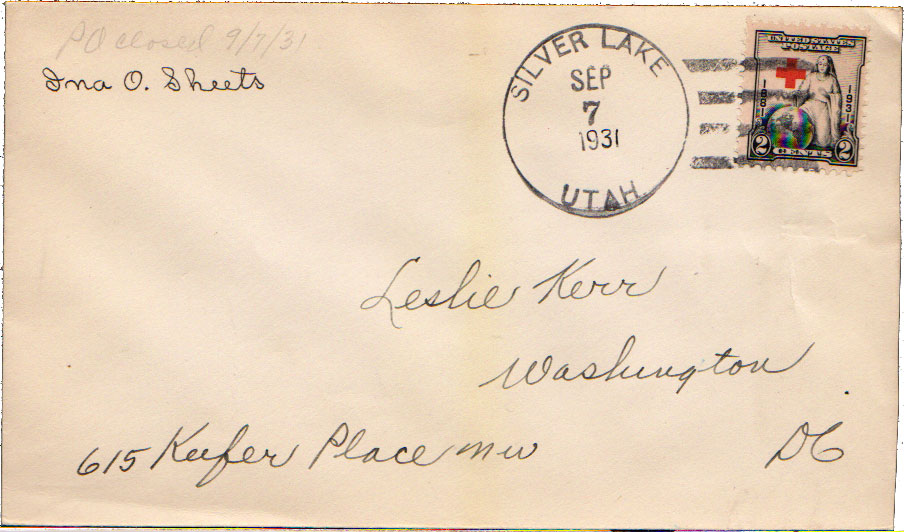 PO closed 9/7/31
Ina O. Sheets
SILVER LAKE
SEP
7
1931
UTAH
UNITED STATES
POSTAGE
1881
1931
2 CENTS 2
Leslie Kerr
Washington
615 Keefer Place NW
DC